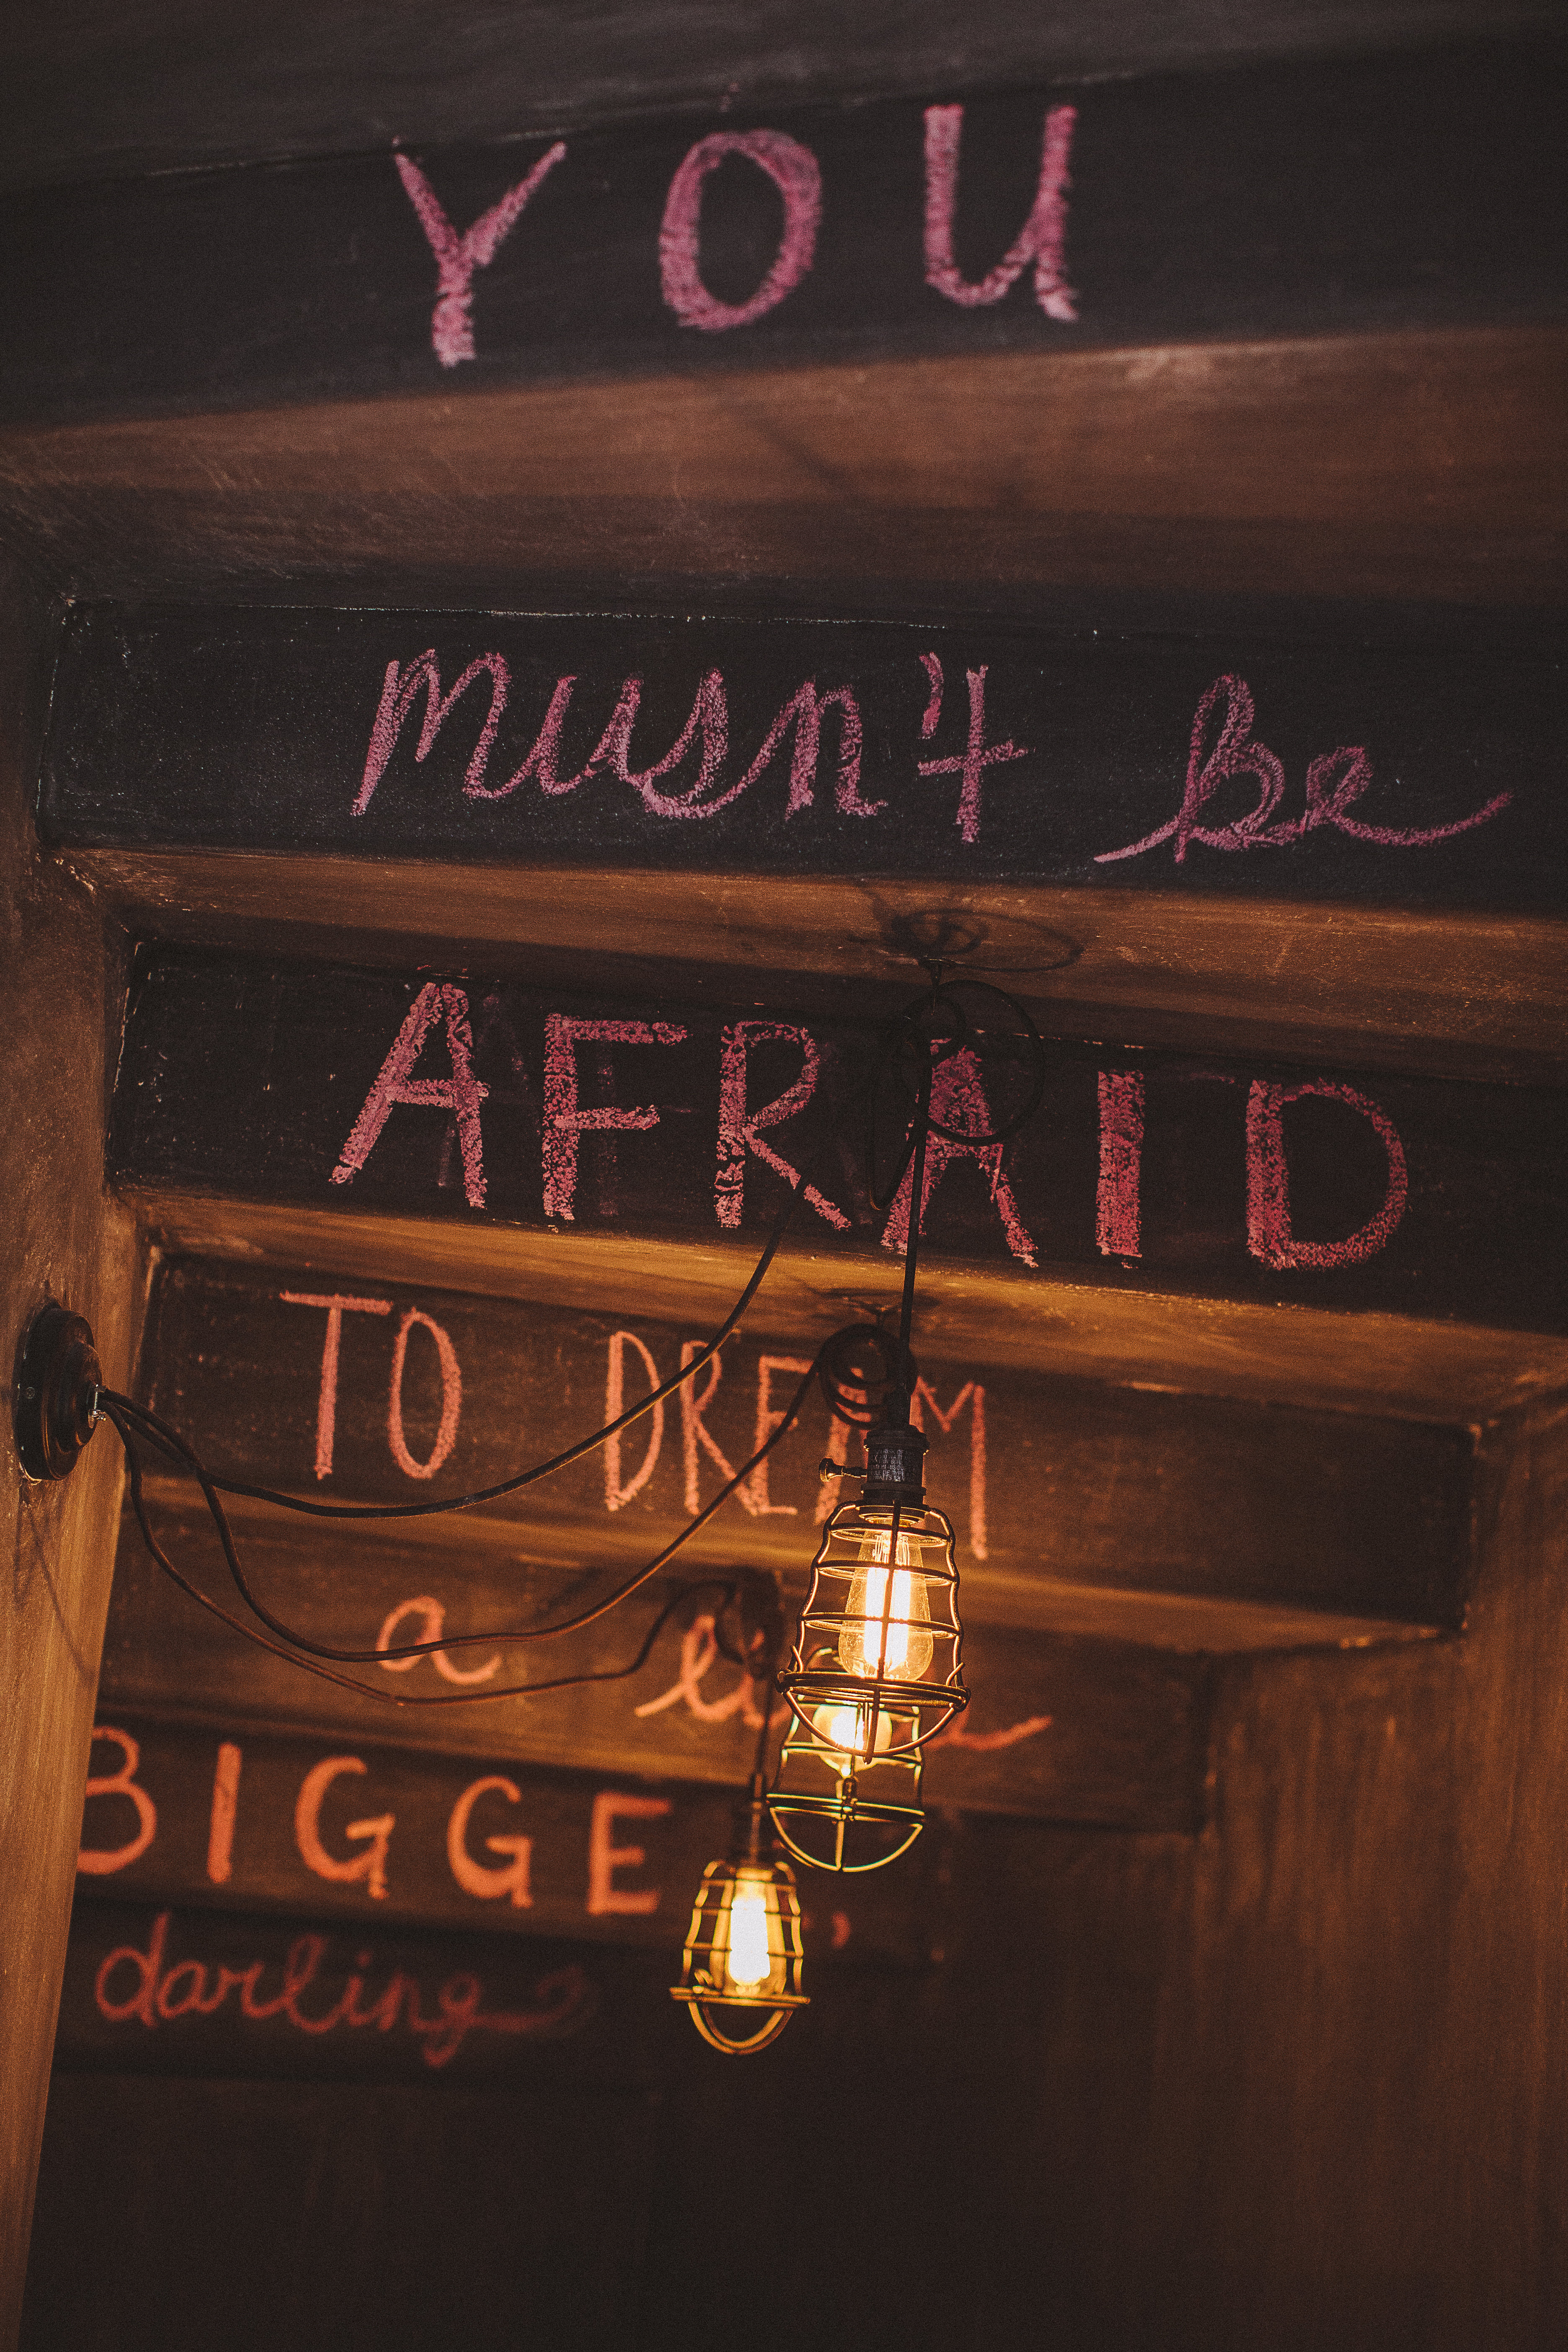 YOU
musn't be
AFRAID
TO DREAM
a
BIGGE
darling